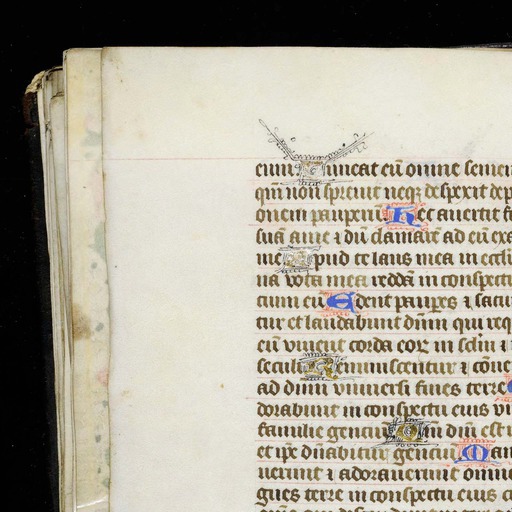 eum Timeat eū omne semen
qm̄ non spreuit neqꝫ despexit dep
onem pauperis Nec auertit fa
suā a me ⁊ dū clamarē ad eū exa
me Apud te laus mea in eccl
na vota mea reddā in conspectu
cium eū Edent paupes ⁊ satu
tur et laudabunt dnm qui req
eū viuent corda eoꝝ in sclm
seculi Reminiscentur ⁊ conue
ad dnm vniuersi fines terre
dorabunt in conspectu eius vn
familie genciū Qm̄ dni est
et ipe dn̄abitur genciū Man
uerunt ⁊ adorauerunt omnes
gues terre in conspectu eius